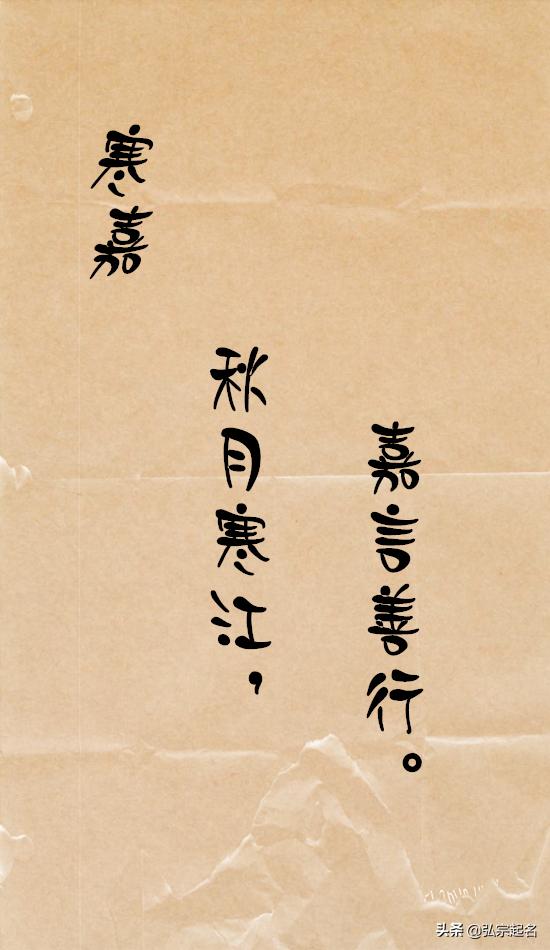 寒嘉
秋月寒江，
嘉言善行。
头条 @弘宗起名